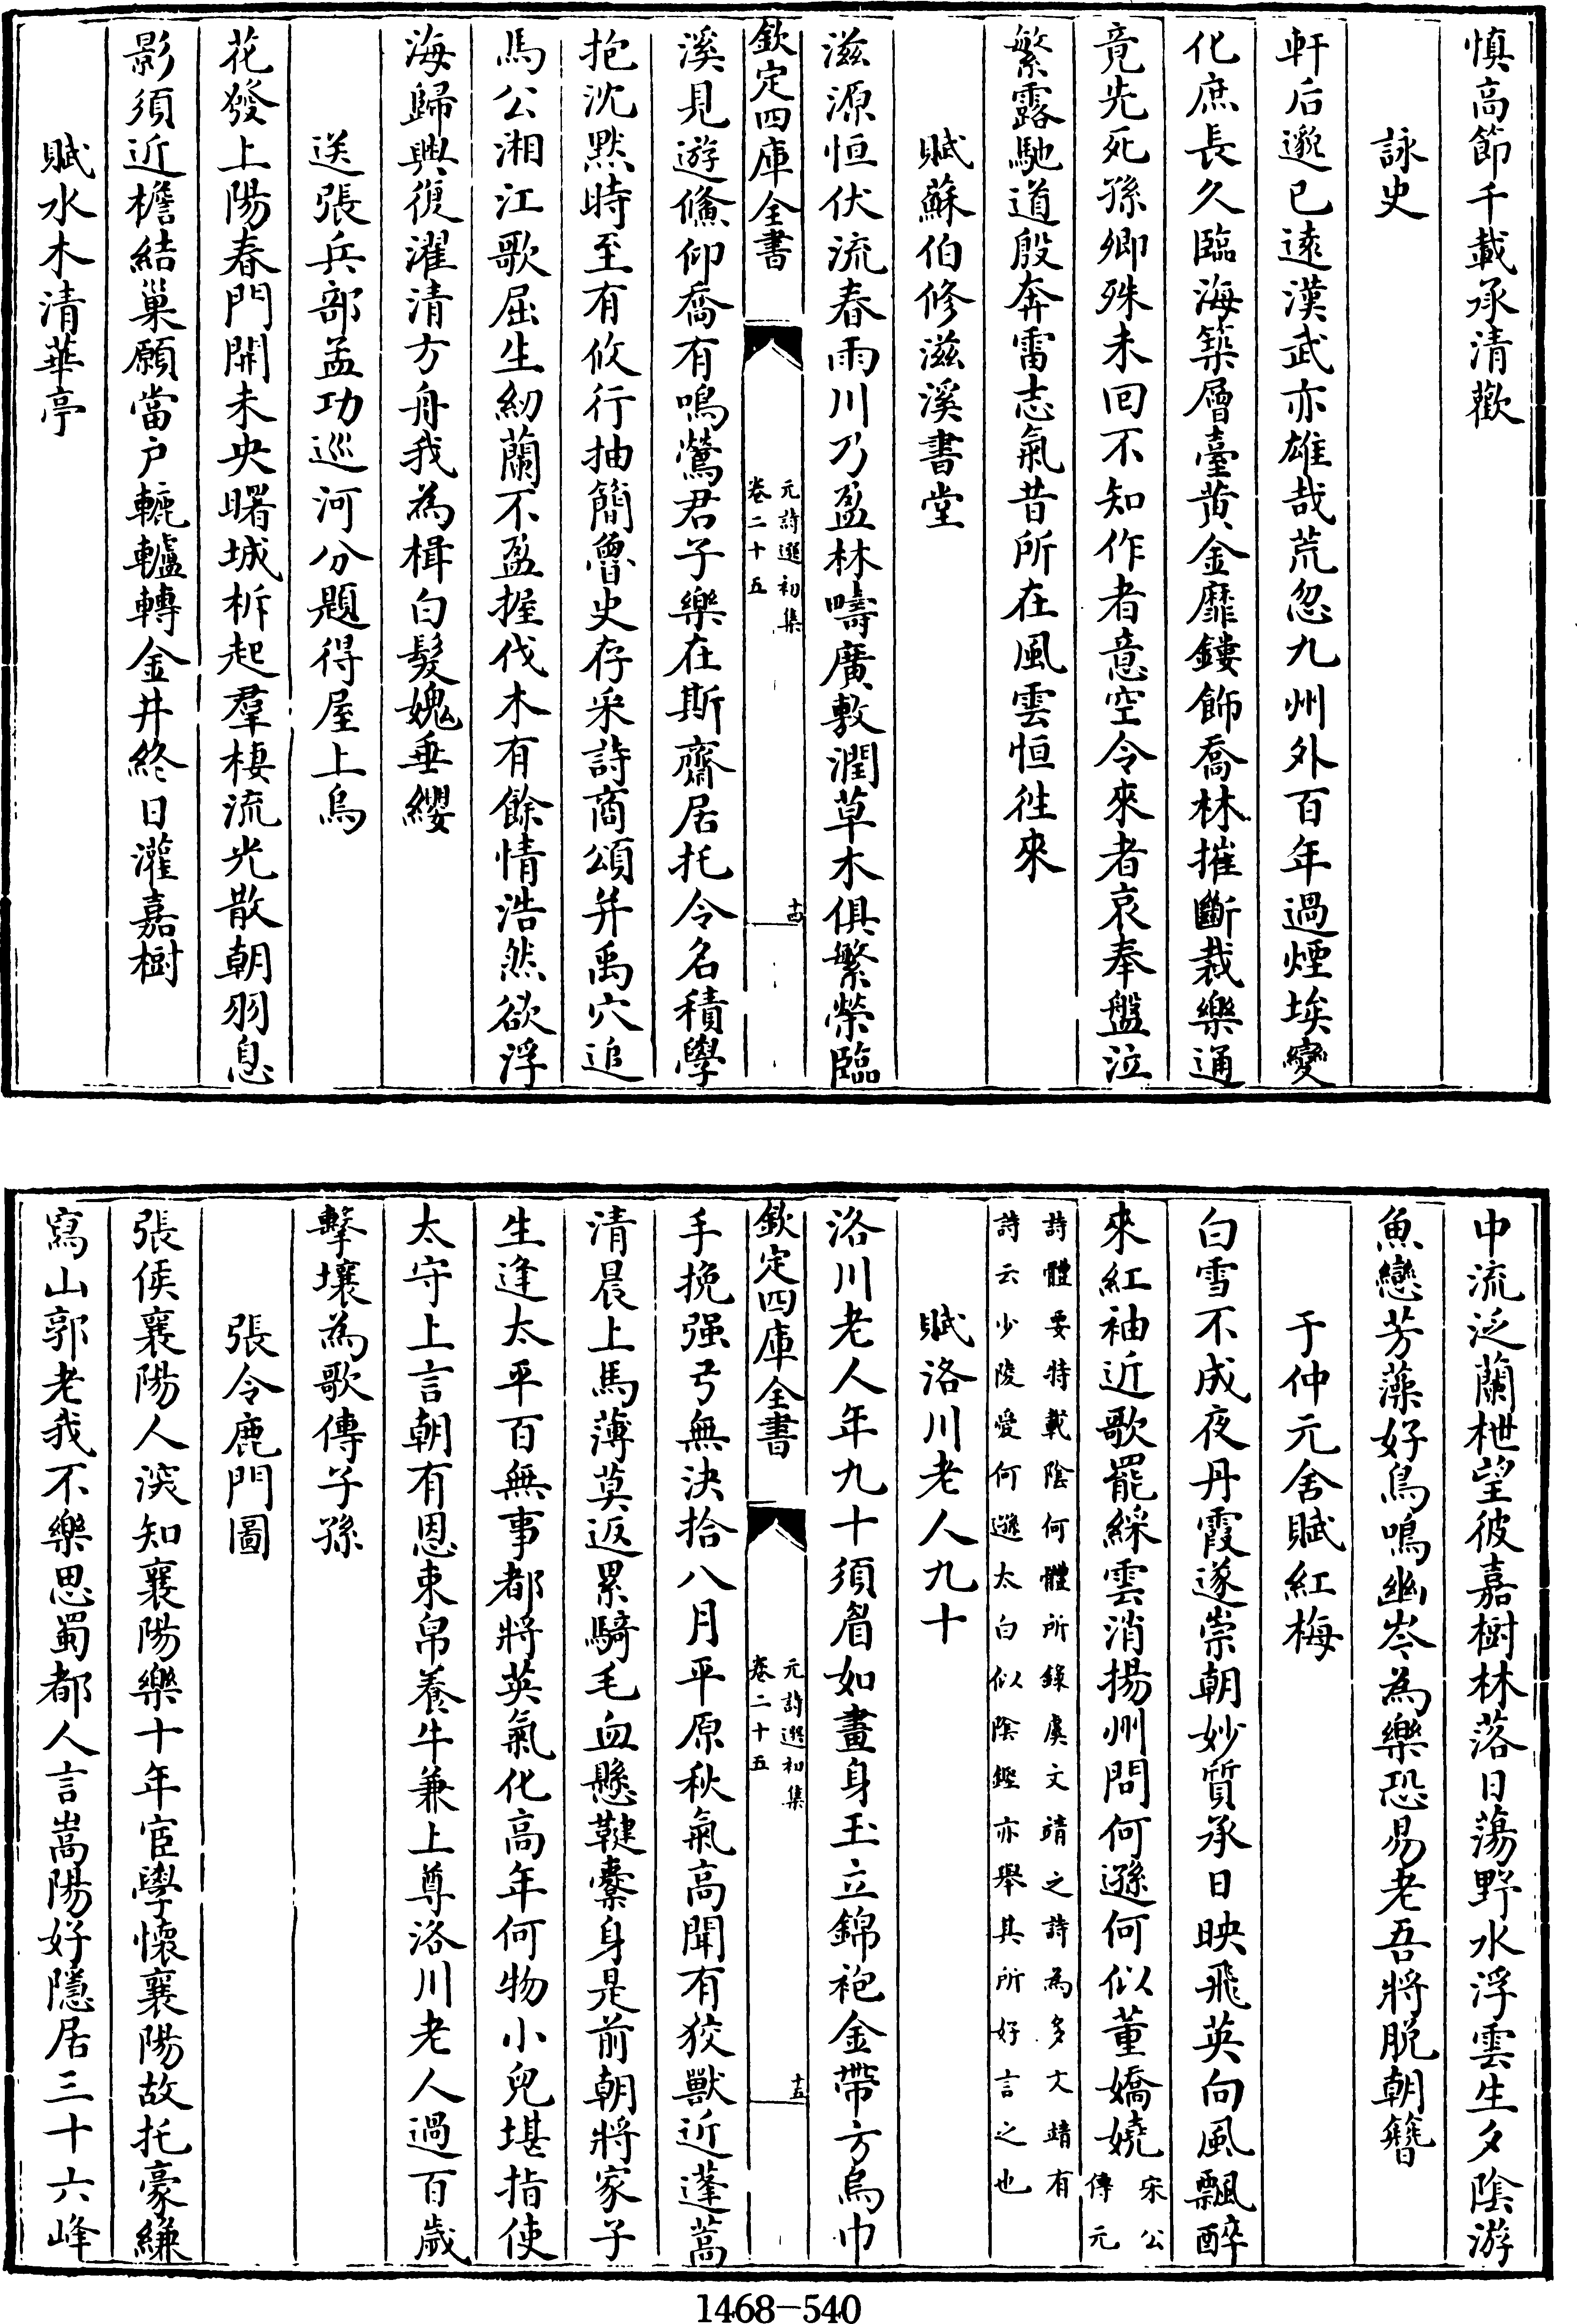 慎高節千載承清歡
詠史
軒后邈已遠漢武亦雄哉荒忽九州外百年過煙埃變
化庶長久臨海築層臺黄金靡鏤飾喬林摧斷裁樂通
竟先死孫卿殊未回不知作者意空令來者哀奉盤泣
繁露馳道殷奔雷志氣昔所在風雲恒徃來
賦蘇伯修滋溪書堂
滋源恒伏流春雨川乃盈林疇廣敷潤草木俱繁榮臨
欽定四庫全書
元詩選初集
卷二十五
十四
溪見遊鯈仰喬有鳴鶯君子樂在斯齋居托令名積學
抱沈黙時至有攸行抽簡魯史存采詩商頌并禹穴追
馬公湘江歌屈生紉蘭不盈握伐木有餘情浩然欲浮
海歸興復濯清方舟我為楫白髮媿垂纓
送張兵部孟功巡河分題得屋上烏
花發上陽春門開未央曙城柝起羣棲流光散朝羽息
影須近檐結巢願當户轆轤轉金井終日灌嘉樹
賦水木清華亭
中流泛蘭枻望彼嘉樹林落日蕩野水浮雲生夕陰游
魚戀芳藻好鳥鳴幽岑為樂恐易老吾將脱朝簪
于仲元舍賦紅梅
白雪不成夜丹霞遂崇朝妙質承日映飛英向風飄醉
來紅袖近歌罷綵雲消揚州問何遜何似董嬌嬈
宋公
傳元
詩體要特載陰何體所錄虞文靖之詩為多文靖有
詩云少陵愛何遜太白似陰鏗亦舉其所好言之也
賦洛川老人九十
洛川老人年九十須眉如畫身玉立錦袍金帶方烏巾
欽定四庫全書
元詩選初集
卷二十五
十五
手挽强弓無決拾八月平原秋氣高聞有狡獸近蓬蒿
清晨上馬薄莫返累騎毛血懸鞬櫜身是前朝將家子
生逢太平百無事都將英氣化高年何物小兒堪指使
太守上言朝有恩束帛養牛兼上尊洛川老人過百歲
擊壤為歌傳子孫
張令鹿門圖
張侯襄陽人深知襄陽樂十年宦學懷襄陽故托豪縑
寫山郭老我不樂思蜀都人言嵩陽好隱居三十六峰
1468-540